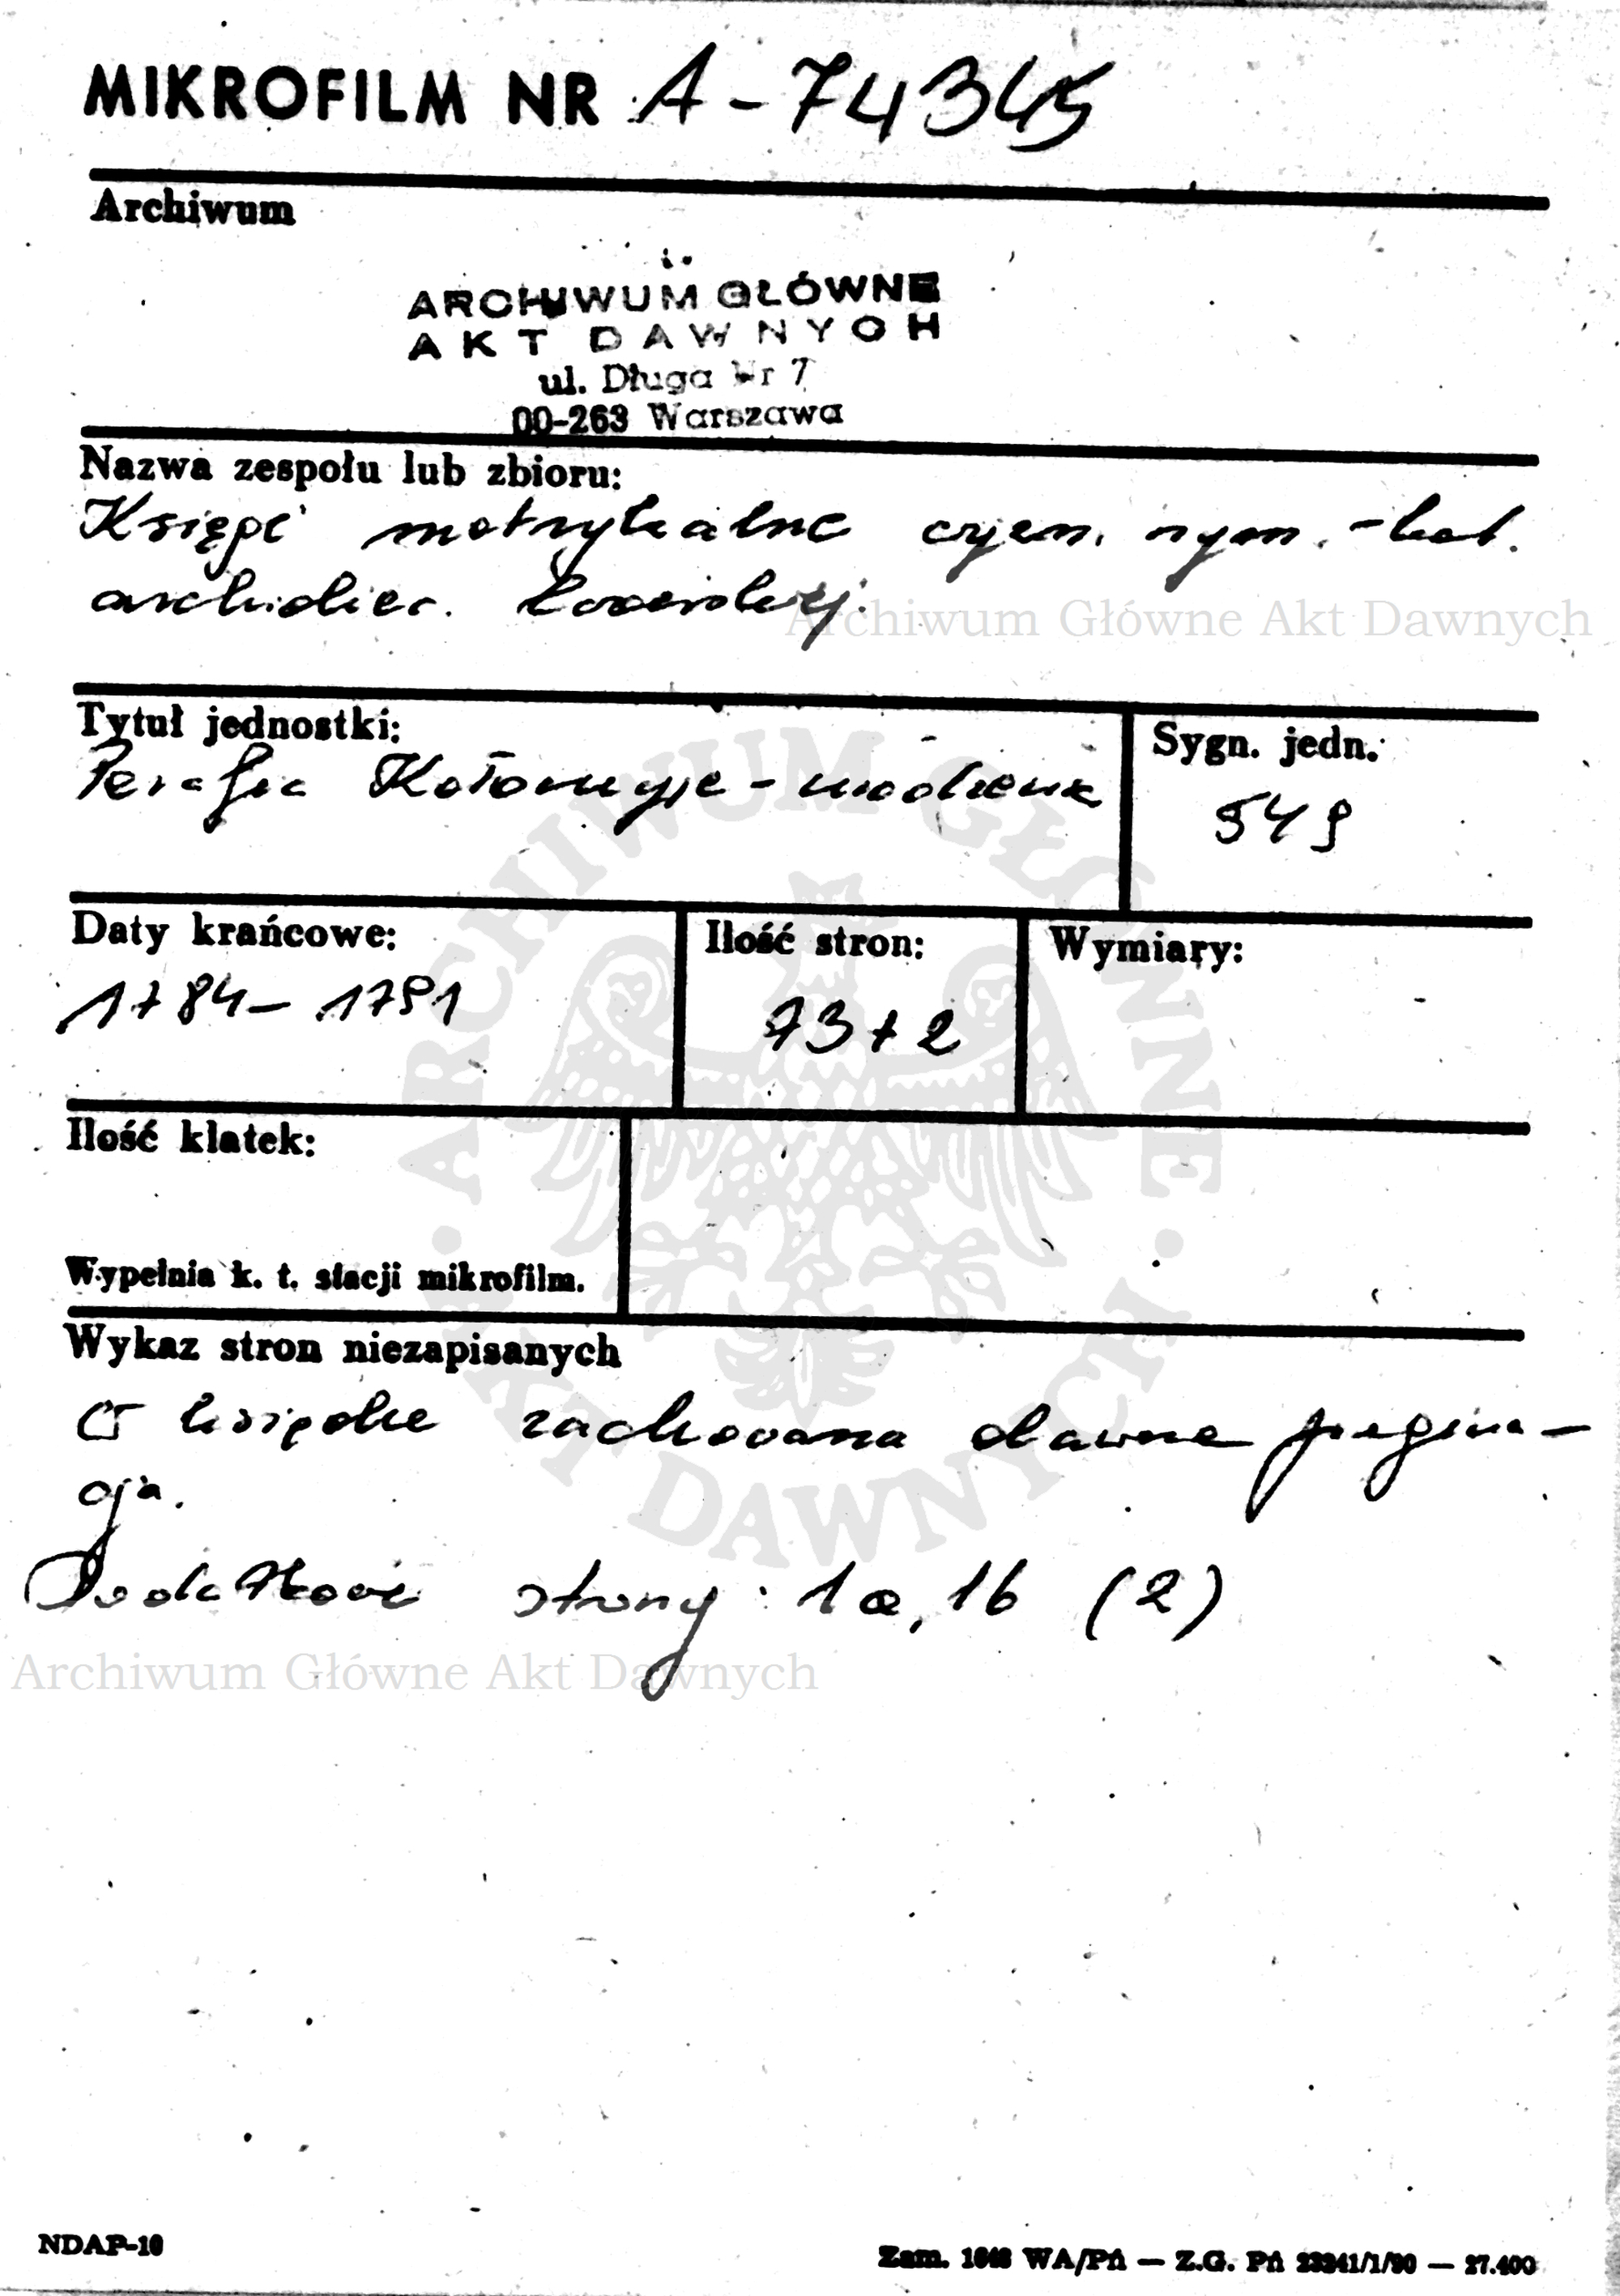 MIKROFILM NR A-74345
Archiwum
ARCHIWUM GŁÓWNE
AKT DAWNYCH
ul. Długa Nr 7
00-263 Warszawa
Nazwa zespołu lub zbioru:
Księgi metrykalne rzym. -kat.
archidiec. lwowskiej.
Archiwum Główne Akt Dawnych
Tytuł jednostki:
Parafia Kołomyja - urodzenia
Sygn. jedn.:
549
Daty krańcowe:
1784 - 1791
Ilość stron:
73 + 2
Wymiary:
Ilość klatek:
Wypełnia k. t. stacji mikrofilm.
Wykaz stron niezapisanych
W księdze zachowana dawna pagina-
cja.
Dodatkowe strony: 1a, 1b (2)
Archiwum Główne Akt Dawnych
ARCHIWUM GŁÓWNE AKT DAWNYCH
NDAP-10
Zam. WA/Pń — Z.G. Pń 23241/1/90 — 27.400